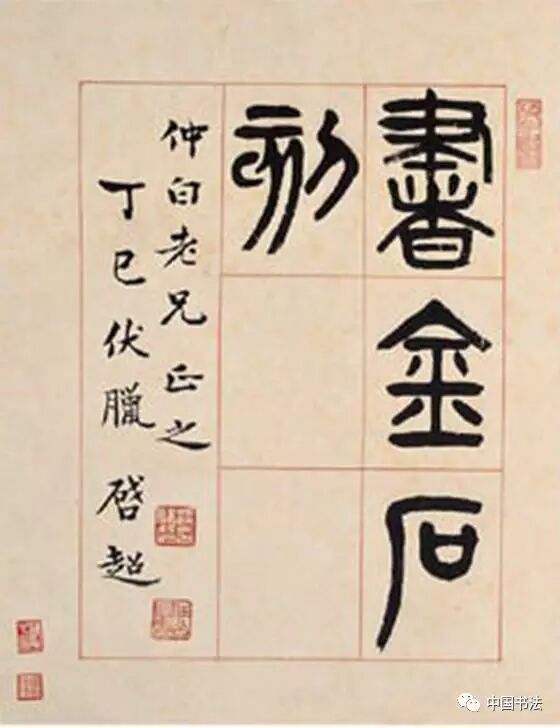 書金石
刻
仲白老兄正之
丁巳伏臘 啓超
中国书法